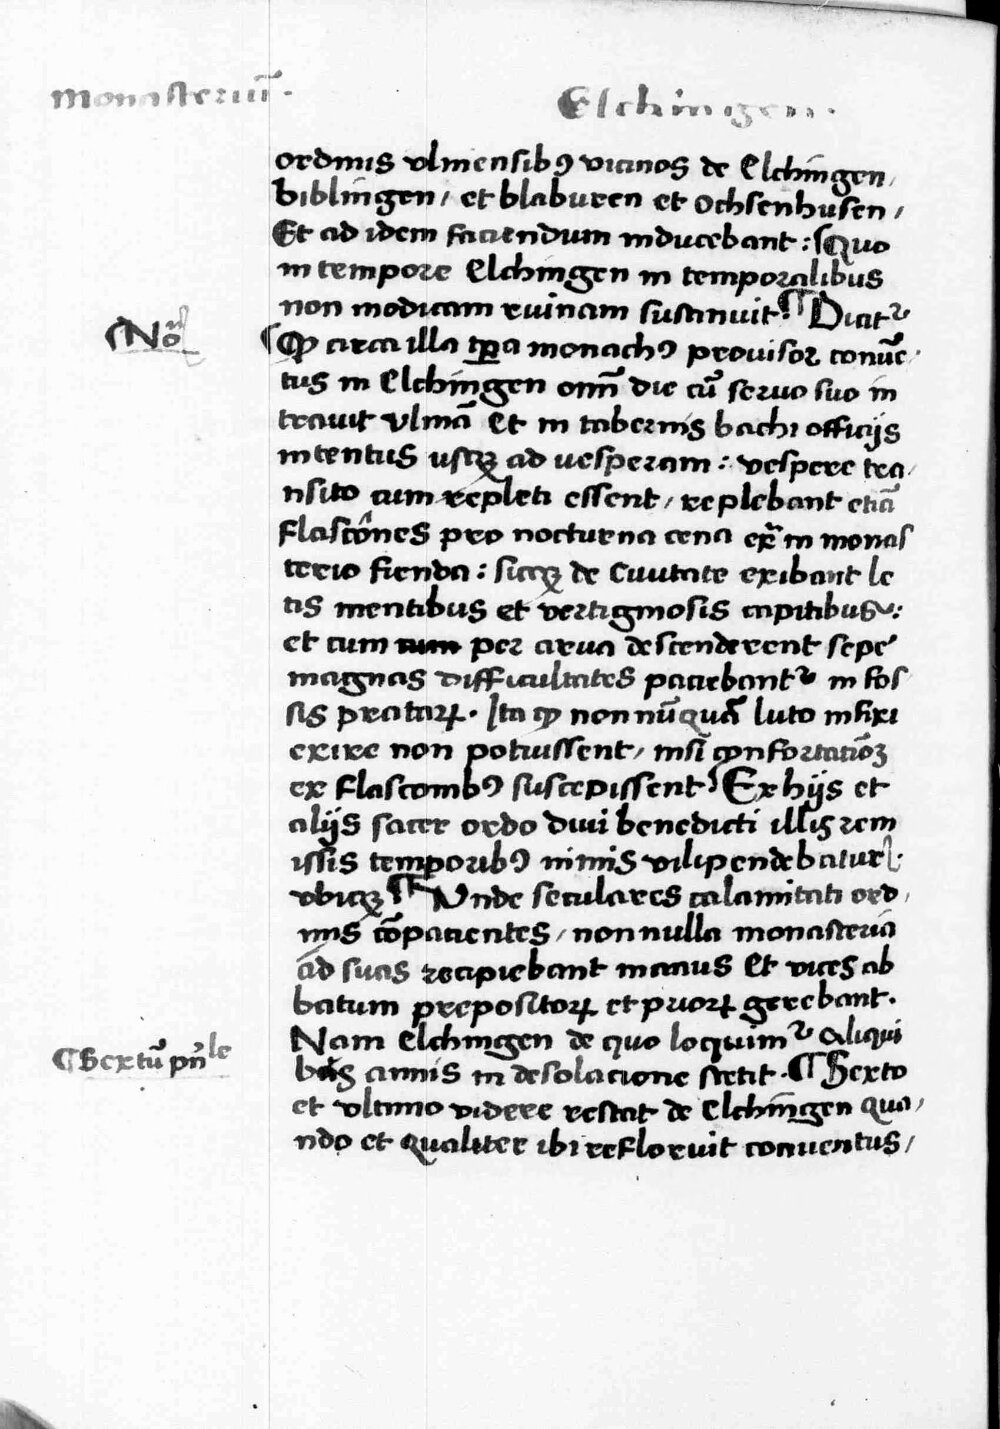 Monasteriū. Elchingen.
ordinis vlmensibꝰ vicinos de Elchingen,
biblingen, et blaburen et Ochsenhusen,
Et ad idem faciendum inducebant: Quo
in tempore Elchingen in temporalibus
non modicam ruinam sustinuit ¶ Dicitᷣ
Nō
ꝙ circa illa tꝑa monachꝰ prouisor conuē,
tus in Elchingen omī die cū seruo suo in
travit vlmā Et in tabernis bachi officijs
intentus usqꝫ ad vesperam: vespere tra,
nsito cum repleti essent, replebant etiā
flascōnes pro nocturna cena ex̄ in monas
terio fienda: sicqꝫ de Ciuitate exibant le
tis mentibus et vertiginosis capitibus:
et cum per arua descenderent sepe
magnas difficultates paciebantᷣ in fos
sis pratoꝝ. Ita ꝙ non nūquā luto infixi
exire non potuissent, nisi ꝯfortatiōꝫ
ex flasconibꝰ suscepissent Ex hijs et
alijs sacer ordo diui benedicti illis rem
issis temporibꝰ nimis vilipendebatur
vbicqꝫ ¶ Unde seculares calamitati ord,
inis cōpacientes, non nulla monasteria
ad suas recipiebant manus Et vices ab
batum prepositoꝝ et prioꝝ gerebant.
Nam Elchingen de quo loquimᷣ aliqui
¶ Sextū pn̄le
bus annis in desolacione stetit. ¶ Sexto
et vltimo videre restat de Elchingen qua,
ndo et qualiter ibi refloruit conuentus,